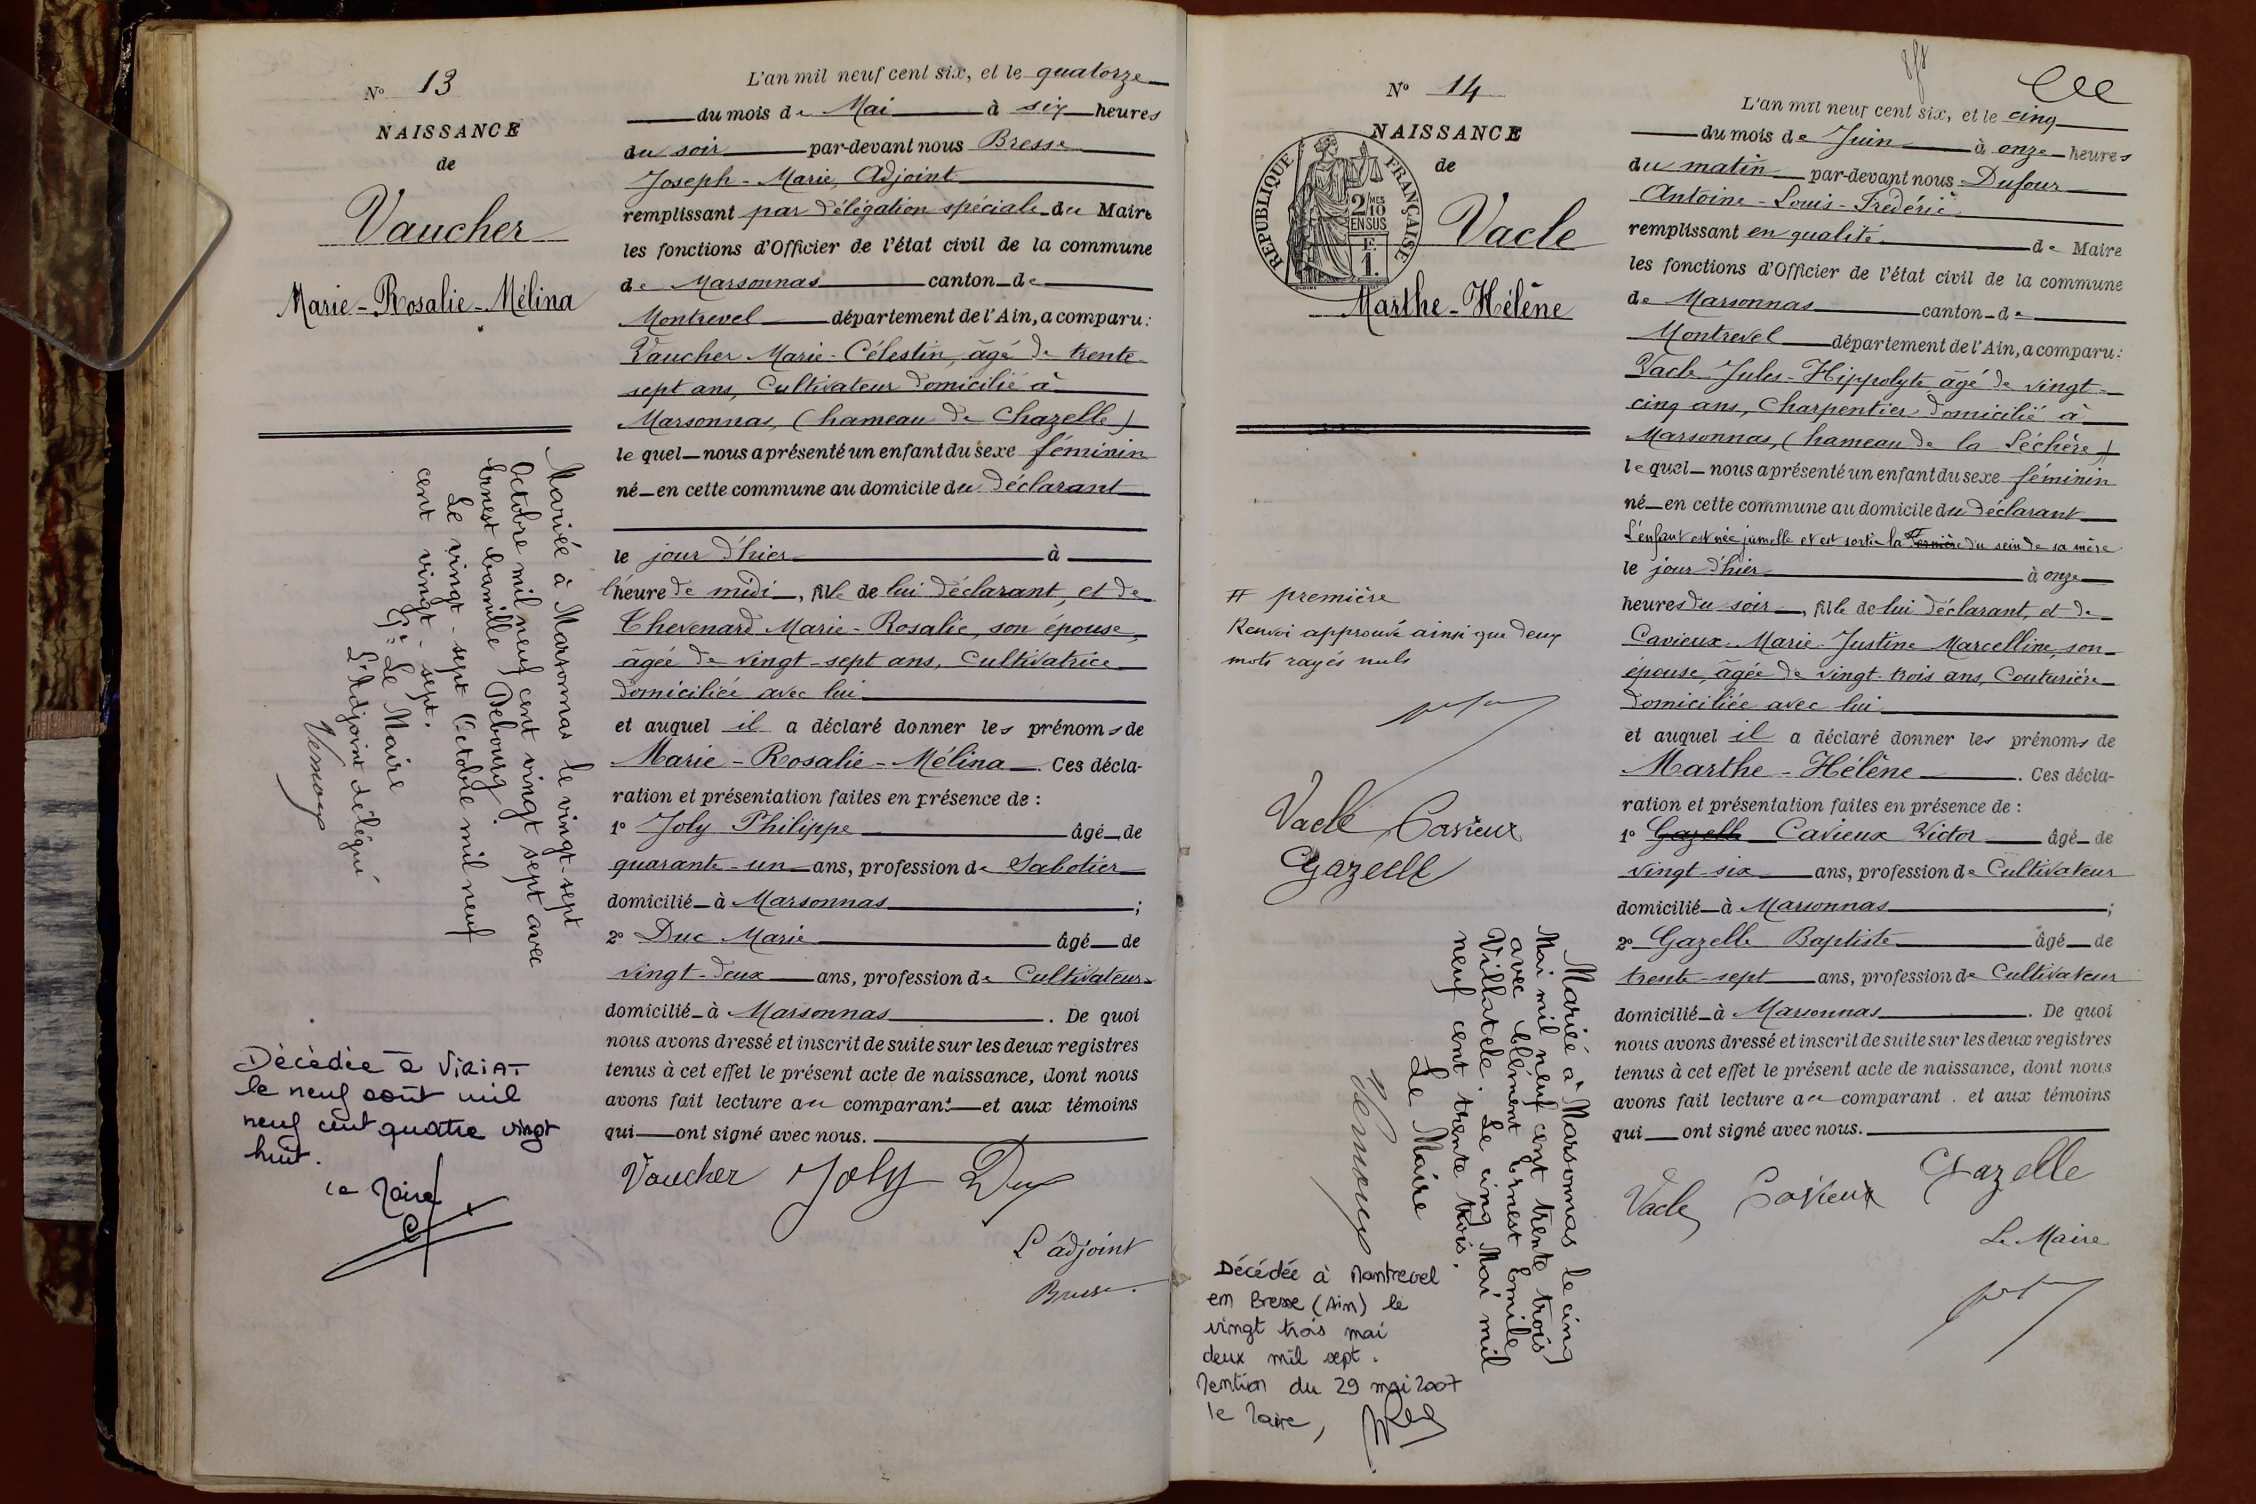 N° 13
NAISSANCE
de
Vaucher
Marie-Rosalie-Mélina
Mariée à Marsonnas le vingt-sept
Octobre mil neuf cent vingt sept avec
Ernest Camille Debourg
Le vingt-sept Octobre mil neuf
cent vingt-sept.
Pr Le Maire
L'Adjoint délégué
Décédée à VIRIAT
le neuf août mil
neuf cent quatre vingt
huit.
le Maire
L'an mil neuf cent six, et le quatorze
du mois de Mai à six heures
du soir par-devant nous Bresse
Joseph-Marie, Adjoint
remplissant par délégation spéciale du Maire
les fonctions d'Officier de l'état civil de la commune
de Marsonnas canton de
Montrevel département de l'Ain, a comparu:
Vaucher Marie-Célestin, âgé de trente-
sept ans, Cultivateur domicilié à
Marsonnas, (hameau de Chazelle)
le quel nous a présenté un enfant du sexe féminin
né en cette commune au domicile du déclarant
le jour d'hier à
l'heure de midi, fille de lui déclarant, et de
Thevenard Marie-Rosalie, son épouse,
âgée de vingt-sept ans, Cultivatrice
domiciliée avec lui
et auquel il a déclaré donner les prénoms de
Marie-Rosalie-Mélina. Ces décla-
ration et présentation faites en présence de :
1° Joly Philippe âgé de
quarante-un ans, profession de Sabotier
domicilié à Marsonnas ;
2° Duc Marie âgé de
vingt-deux ans, profession de Cultivateur
domicilié à Marsonnas . De quoi
nous avons dressé et inscrit de suite sur les deux registres
tenus à cet effet le présent acte de naissance, dont nous
avons fait lecture au comparant et aux témoins
qui ont signé avec nous.
Vaucher Joly Duc
L'adjoint
Bresse
N° 14
NAISSANCE
de
RÉPUBLIQUE FRANÇAISE
2/10 MES
EN SUS
F.
1.
Vacle
Marthe-Hélène
# première
Renvoi approuvé ainsi que deux
mots rayés nuls
Vacle Cavieux
Gazelle
Mariée à Marsonnas le cinq
Mai mil neuf cent trente trois
avec Clément Ernest Emile
Villatele. Le cinq Mai mil
neuf cent trente trois.
Le Maire
Décédée à Montrevel
en Bresse (Ain) le
vingt trois mai
deux mil sept.
Mention du 29 mai 2007
le Maire,
L'an mil neuf cent six, et le cinq
du mois de Juin à onze heures
du matin par-devant nous Dufour
Antoine-Louis-Frédéric
remplissant en qualité de Maire
les fonctions d'Officier de l'état civil de la commune
de Marsonnas canton de
Montrevel département de l'Ain, a comparu:
Vacle Jules-Hippolyte âgé de vingt-
cinq ans, Charpentier domicilié à
Marsonnas, (hameau de la Séchère)
le quel nous a présenté un enfant du sexe féminin
né en cette commune au domicile du déclarant
L'enfant est née jumelle et est sortie la # dernière du sein de sa mère
le jour d'hier à onze
heures du soir, fille de lui déclarant, et de
Cavieux Marie-Justine Marcelline, son
épouse, âgée de vingt-trois ans, Couturière
domiciliée avec lui
et auquel il a déclaré donner les prénoms de
Marthe-Hélène . Ces décla-
ration et présentation faites en présence de :
1° Gazelle Cavieux Victor âgé de
vingt-six ans, profession de Cultivateur
domicilié à Marsonnas ;
2° Gazelle Baptiste âgé de
trente-sept ans, profession de Cultivateur
domicilié à Marsonnas . De quoi
nous avons dressé et inscrit de suite sur les deux registres
tenus à cet effet le présent acte de naissance, dont nous
avons fait lecture au comparant . et aux témoins
qui ont signé avec nous.
Vacle Cavieux Gazelle
Le Maire